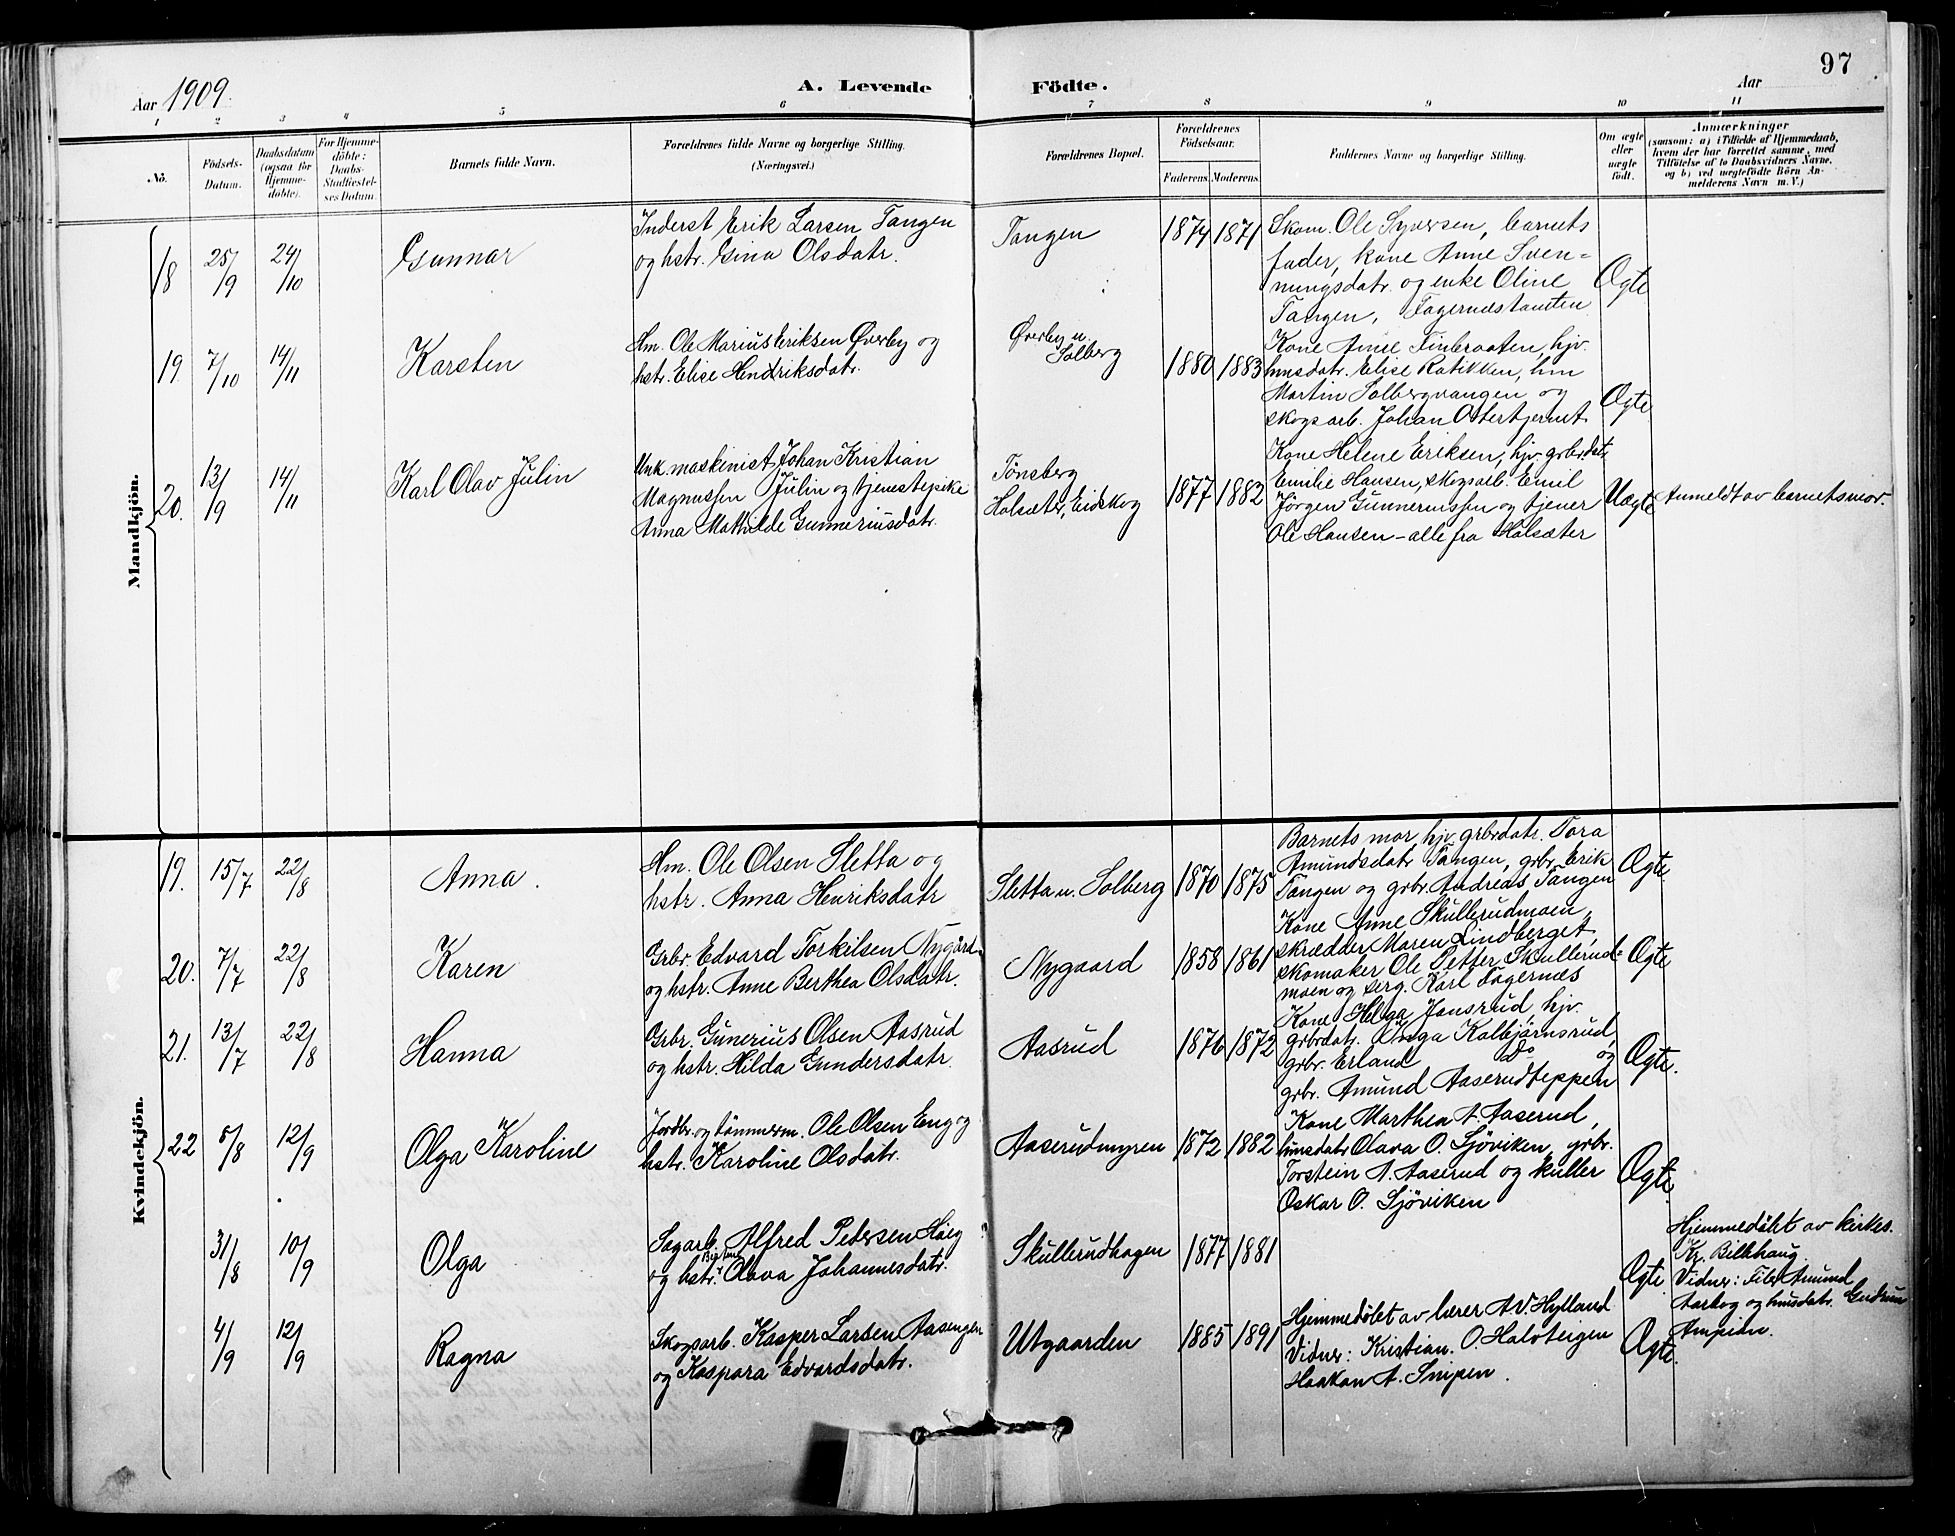 97
Aar 1909. A. Levende Födte. Aar
1 2 3 4 5 6 7 8 9 10 11
No. Födsels-Datum. Daabsdatum (ogsaa for Hjemme-döbte). For Hjemme-döbte: Daabs-Stadfæstel-ses Datum. Barnets fulde Navn. Forældrenes fulde Navne og borgerlige Stilling. (Næringsvei.) Forældrenes Bopæl. Forældrenes Födselsaar. Faderens Moderens Faddernes Navne og borgerlige Stilling. Om ægte eller uægte födt. Anmærkninger (saasom: a) i Tilfælde af Hjemmedaab, hvem der har forrettet samme, med Tilföielse af to Daabsvidners Navne, og b) ved uægtefödte Börn An-melderens Navn m. V.)
Mandkjön.
18 25/9 24/10 Gunnar
Inderst Erik Larsen Tangen
og hstr. Gina Olsdatr.
Tangen 1874 1871
Skom. Ole Syversen, barnets
fader, kone Anne Sven=
nungsdatr. og enke Oline
Tangen, Fagernæstomten
Ægte
19. 7/10 14/11 Karsten
Hm. Ole Marius Eriksen Øverby og
hstr. Elise Hendriksdatr.
Øverby u.
Solberg
1880 1883
Kone Anne Finbraaten, hjv.
husdatr. Elise Ratikken, hm
Martin Solbergvangen og
skogsarb. Johan Ottertjernet
Ægte
20. 13/9 14/11 Karl Olav Julin
Unk. maskinist Johan Kristian
Magnussen Julin og tjenestepike
Anna Mathilde Gunneriusdatr.
Tønsberg
Holsæter, Eidskog
1877 1882
Kone Helene Eriksen, hjv. grbrdatr.
Emilie Hansen, skogsarb. Emil
Jørgen Gunneriussen og tjener
Ole Hansen - alle fra Holsæter
Uægte Anmeldt av barnets mor.
Kvindekjön.
19. 15/7 22/8 Anna.
Hm. Ole Olsen Sletta og
hstr. Anna Henriksdatr
Sletta u. Solberg 1870 1875
Barnets mor, hjv. grbrdatr. Tora
Amundsdatr Tangen, grbr. Erik
Tangen og grbr. Andreas Tangen
Ægte.
20. 7/7 22/8 Karen
Grbr. Edvard Torkilsen Nygård
og hstr. Anne Berthea Olsdatr.
Nygaard 1858 1861
Kone Anne Skullerudmoen,
skrædder Maren Lindberget,
skomaker Ole Petter Skullerud=
moen og serg. Karl Fagernæs
Ægte
21. 13/7 22/8 Hanna
Grbr. Gunerius Olsen Aasrud
og hstr. Hilda Gundersdatr.
Aasrud 1876 1872
Kone Helga Jonsrud, hjv.
grbrdatr. Inga Kolbjørnsrud,
grbr. Erland Do og
grbr. Amund Aaserudteppen
Ægte.
22 5/8 12/9 Olga Karoline
Jordbr. og tømmerm. Ole Olsen Eng og
hstr. Karoline Olsdatr.
Aaserudmyren 1872 1882
Kone Marthea A. Aaserud,
husdatr Olava O. Sjöviken, grbr.
Torstein A. Aaserud og kuller
Oskar O. Sjöviken
Ægte.
31/8 10/9 Olga
Sagarb. Alfred Pedersen Høeg
og hstr. Olava Johannesdatr.
Skullerudhagen 1877 1881
Ægte.
Hjemmedøbt av kirkes.
Kr. Billehaug.
Vidner: Filer Amund
Aarkog og husdatr. Gudrun
Ampidn.
4/9 12/9 Ragna
Skogsarb. Kasper Larsen Aasengen
og Kaspara Edvardsdatr.
Utgaarden 1885 1891
Hjemmedøbt av lærer A V. Hylland
Vidner: Kristian. O. Halvteigen
Haakon A. Snipen.
Ægte.